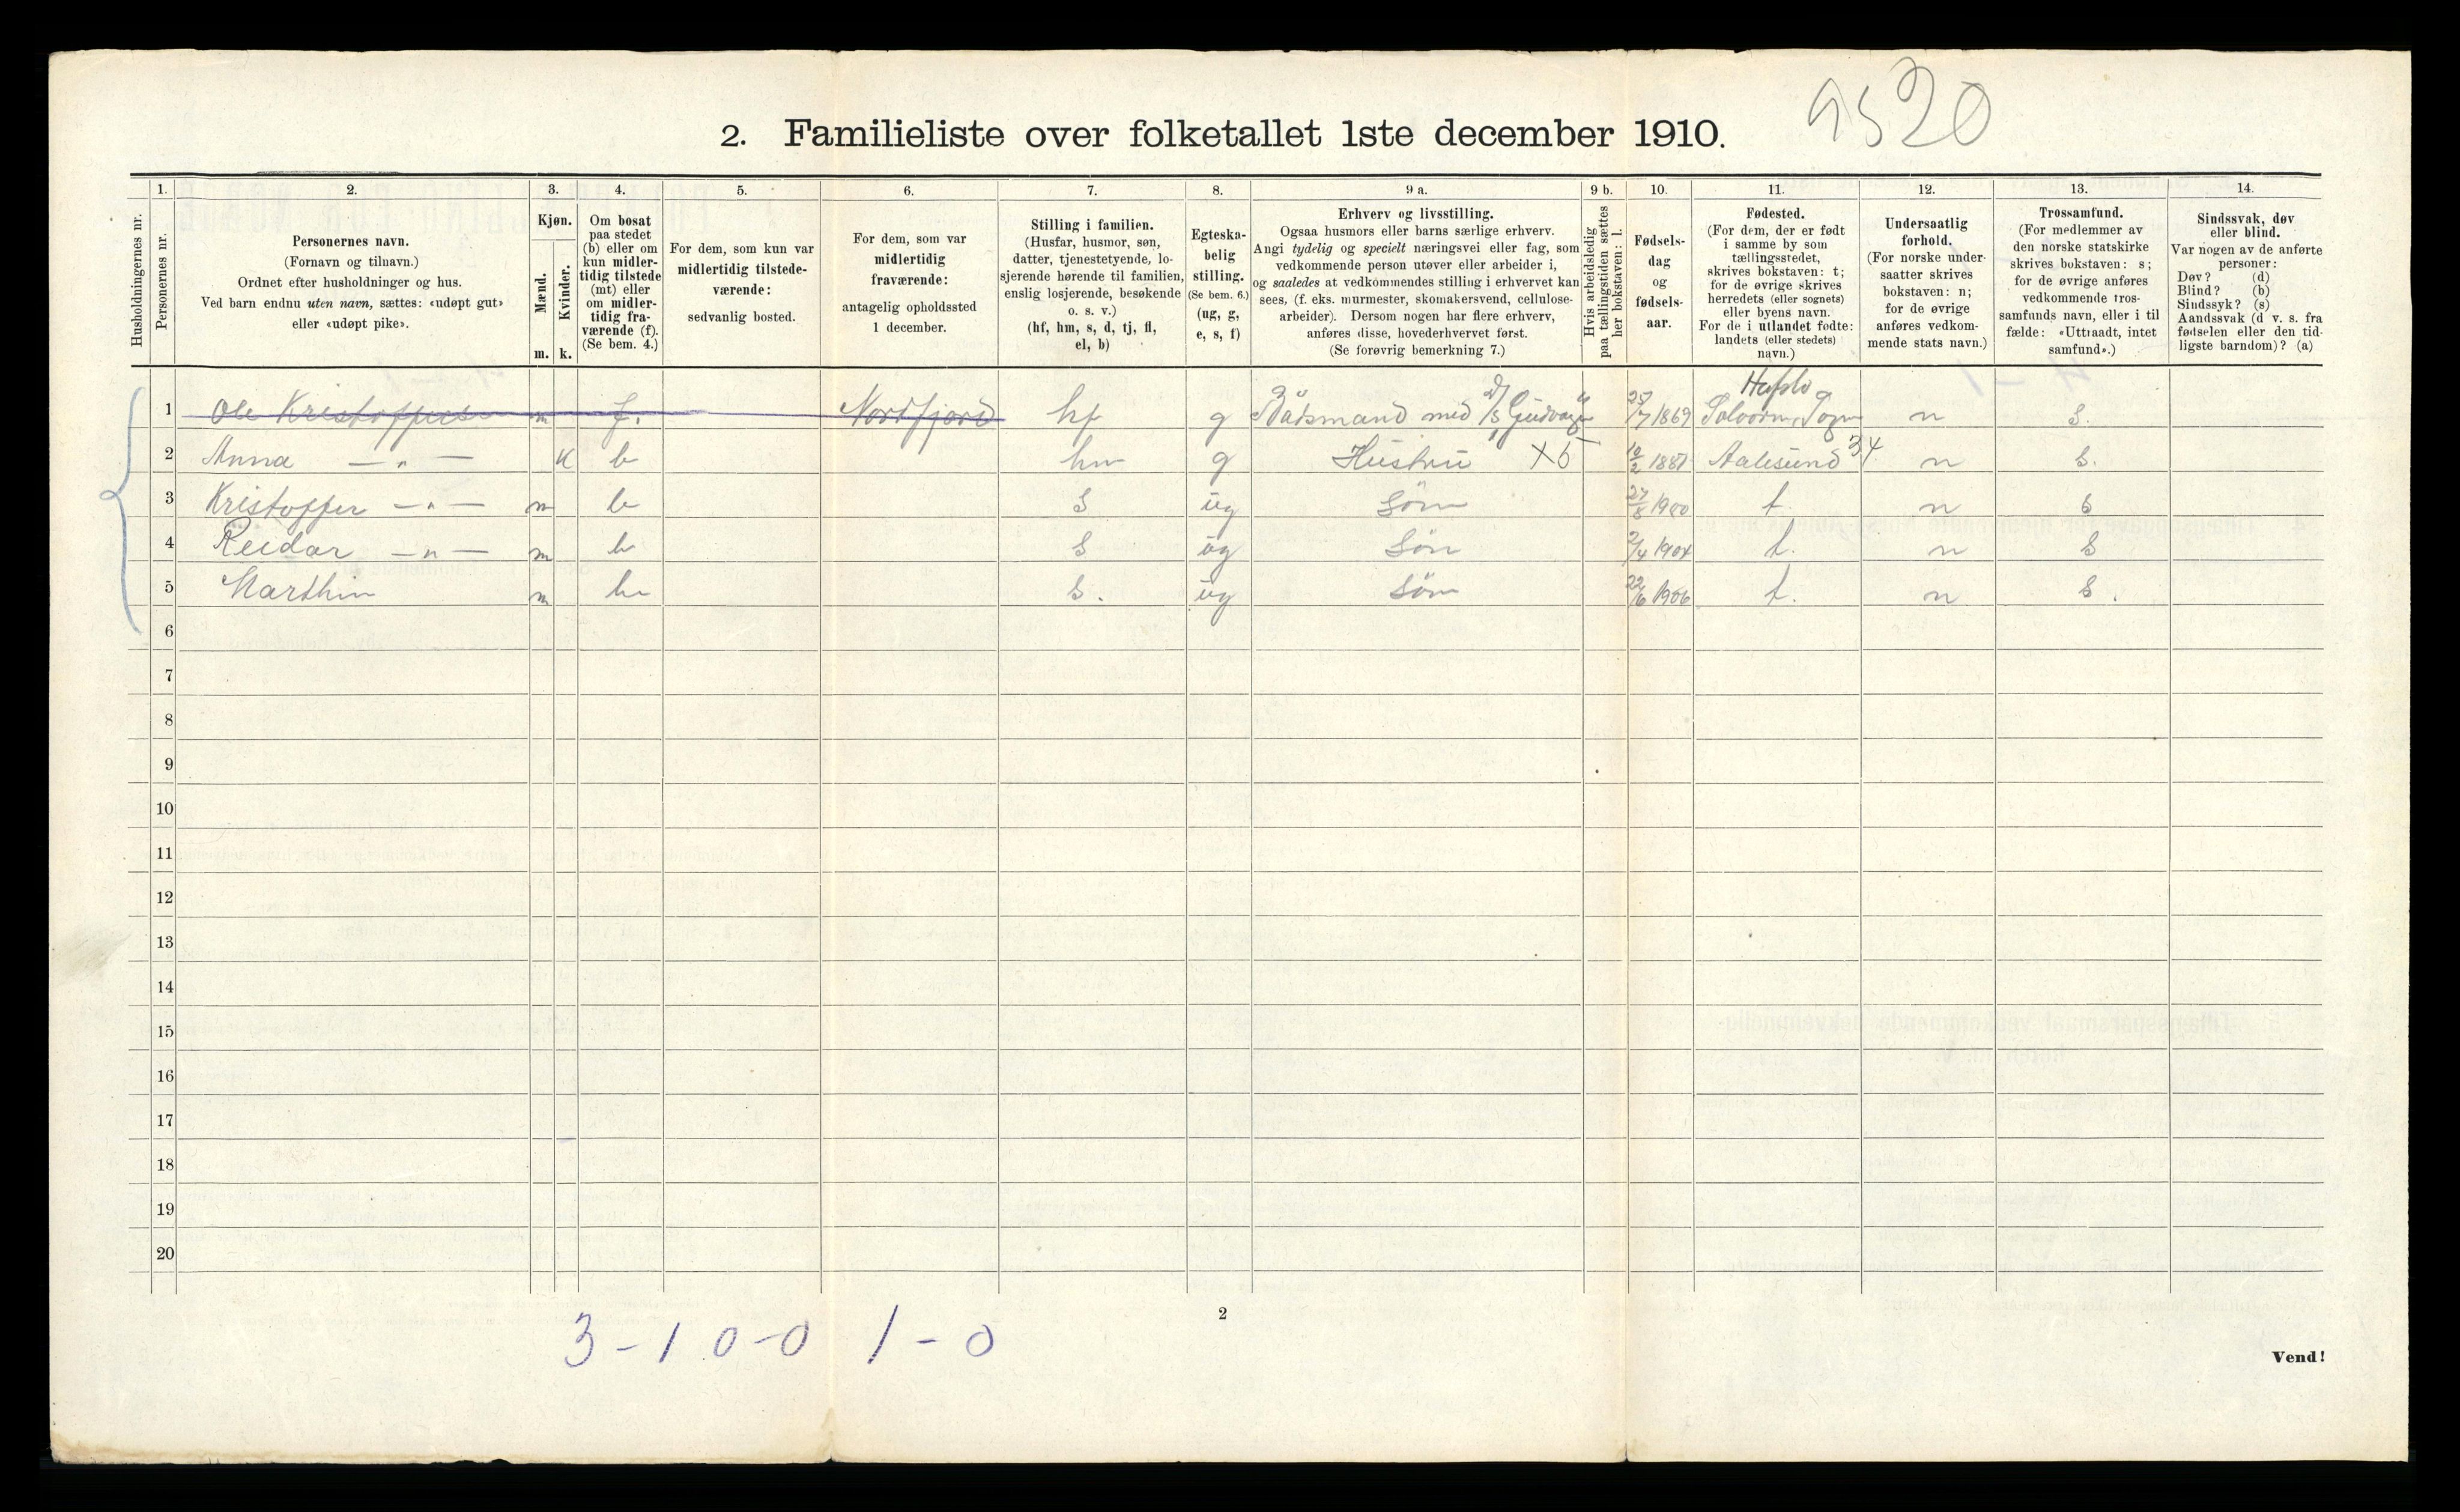 9520
2. Familieliste over folketallet 1ste december 1910.
1. 2. 3. 4. 5. 6. 7. 8. 9 a. 9 b. 10. 11. 12. 13. 14.
Husholdningernes nr.
Personernes nr.
Personernes navn.
(Fornavn og tilnavn.)
Ordnet efter husholdninger og hus.
Ved barn endnu uten navn, sættes: «udøpt gut»
eller «udøpt pike».
Kjøn.
Mænd.
Kvinder.
m. k.
Om bosat
paa stedet
(b) eller om
kun midler-
tidig tilstede
(mt) eller
om midler-
tidig fra-
værende (f).
(Se bem. 4.)
For dem, som kun var
midlertidig tilstede-
værende:
sedvanlig bosted.
For dem, som var
midlertidig
fraværende:
antagelig opholdssted
1 december.
Stilling i familien.
(Husfar, husmor, søn,
datter, tjenestetyende, lo-
sjerende hørende til familien,
enslig losjerende, besøkende
o. s. v.)
(hf, hm, s, d, tj, fl,
el, b)
Egteska-
belig
stilling.
(Se bem. 6.)
(ug, g,
e, s, f)
Erhverv og livsstilling.
Ogsaa husmors eller barns særlige erhverv.
Angi tydelig og specielt næringsvei eller fag, som
vedkommende person utøver eller arbeider i,
og saaledes at vedkommendes stilling i erhvervet kan
sees, (f. eks. murmester, skomakersvend, cellulose-
arbeider). Dersom nogen har flere erhverv,
anføres disse, hovederhvervet først.
(Se forøvrig bemerkning 7.)
Hvis arbeidsledig
paa tællingstiden sættes
her bokstaven: l.
Fødsels-
dag
og
fødsels-
aar.
Fødested.
(For dem, der er født
i samme by som
tællingsstedet,
skrives bokstaven: t;
for de øvrige skrives
herredets (eller sognets)
eller byens navn.
For de i utlandet fødte:
landets (eller stedets)
navn.)
Undersaatlig
forhold.
(For norske under-
saatter skrives
bokstaven: n;
for de øvrige
anføres vedkom-
mende stats navn.)
Trossamfund.
(For medlemmer av
den norske statskirke
skrives bokstaven: s;
for de øvrige anføres
vedkommende tros-
samfunds navn, eller i til
fælde: «Uttraadt, intet
samfund».)
Sindssvak, døv
eller blind.
Var nogen av de anførte
personer:
Døv? (d)
Blind? (b)
Sindssyk? (s)
Aandssvak (d v. s. fra
fødselen eller den tid-
ligste barndom)? (a)
Hafslo
1 Ole Kristoffersen m f. Nordfjord hf g Baadsmand med D/S Gudvangen 25/7 1869 Solvorn, Sogn n s.
2 Anna —"— K b hm g Hustru X6 10/2 1881 Aalesund 34 n s.
3 Kristoffer —"— m b s ug søn 27/8 1900 t. n s
4 Reidar —"— m b s ug søn 2/4 1904 t. n s
5 Marthin m b s. ug søn 22/6 1906 t. n s.
6
7
8
9
10
11
12
13
14
15
16
17
18
19
20
3-1 0-0 1-0
2
Vend!